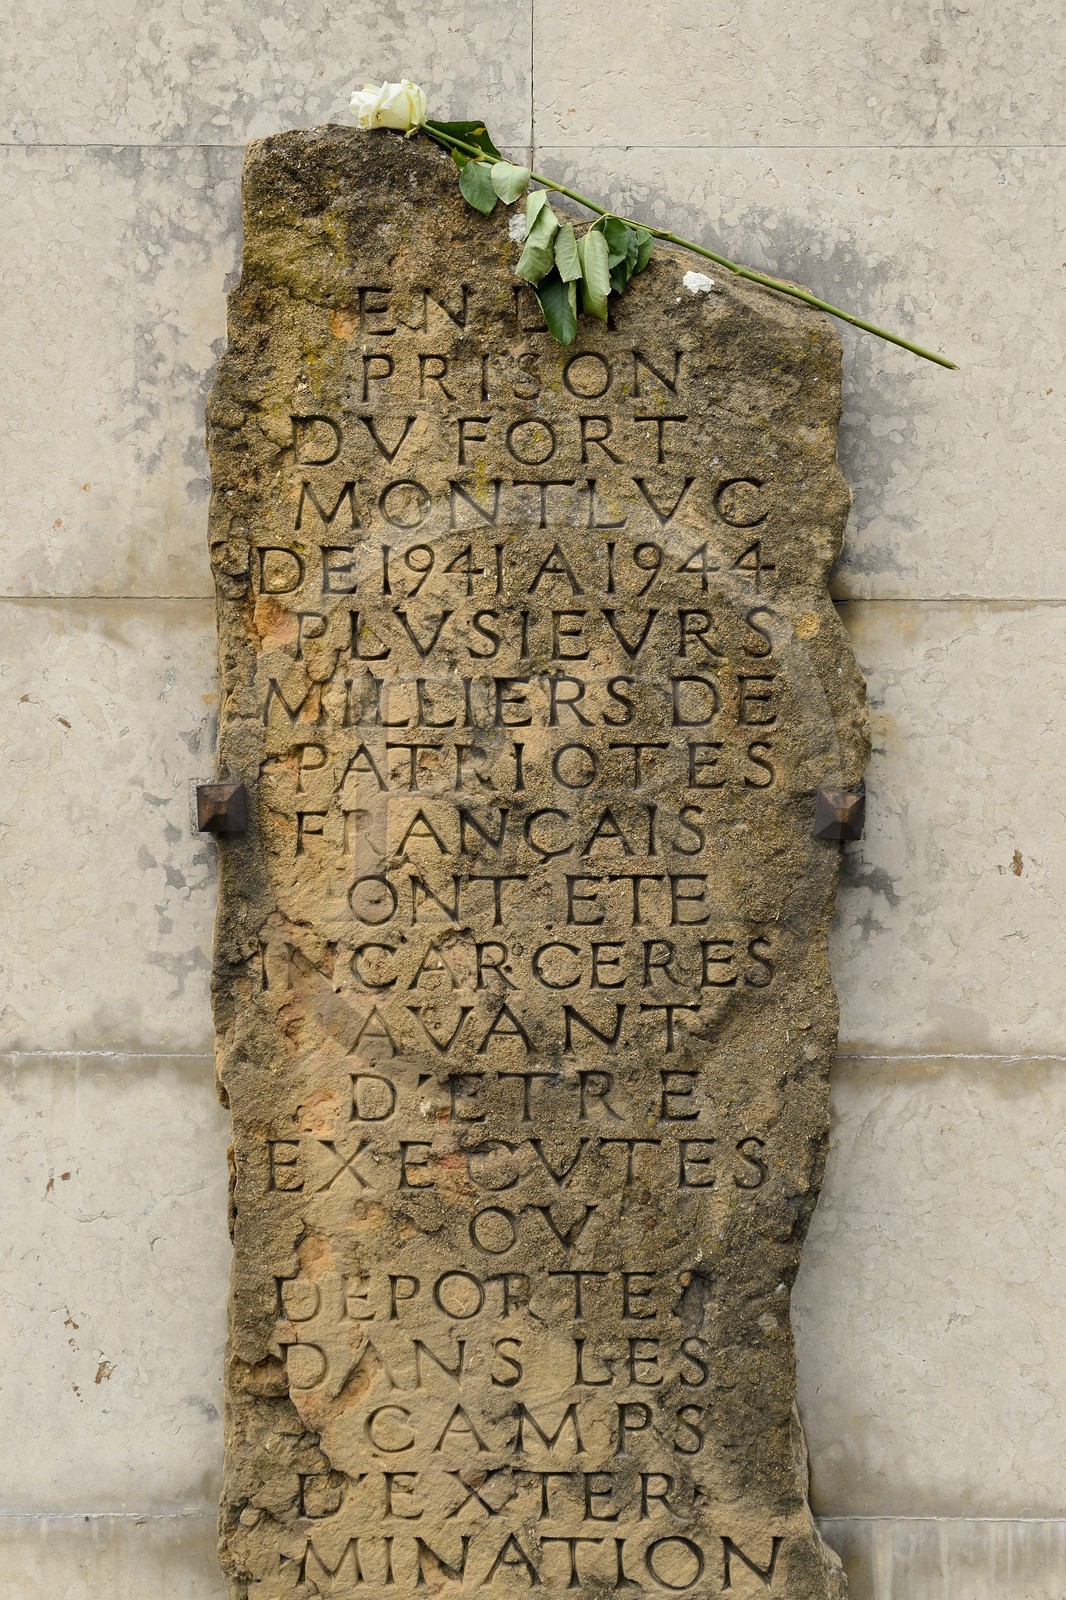 EN LA
PRISON
DV FORT
MONTLVC
DE 1941 A 1944
PLVSIEVRS
MILLIERS DE
PATRIOTES
FRANÇAIS
ONT ETE
INCARCERES
AVANT
D'ETRE
EXECVTES
OV
DEPORTES
DANS LES
CAMPS
D'EXTER
MINATION